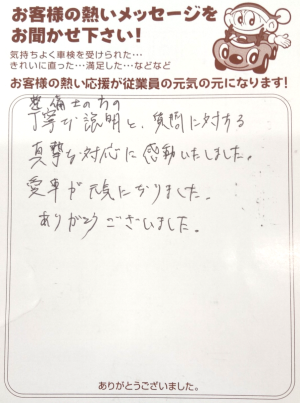 お客様の熱いメッセージを
お聞かせ下さい!
気持ちよく車検を受けられた…
きれいに直った…満足した…などなど
お客様の熱い応援が従業員の元気の元になります!
整備士の方の
丁寧な説明と、質問に対する
真摯な対応に感動いたしました。
愛車が元気になりました。
ありがとうございました。
ありがとうございました。